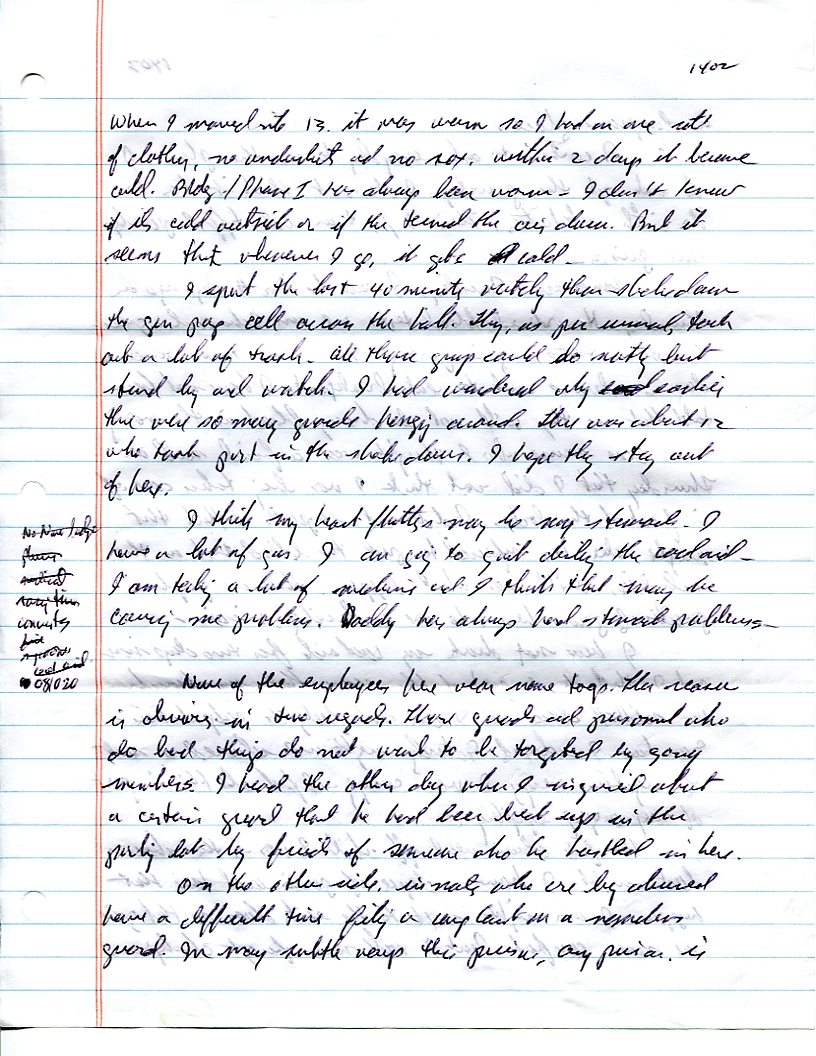 1402
When I moved into 13. it was warm so I had on one set
of clothes, no undershirt and no sox. within 2 days it became
cold. Bldg 1/Phase I has always been warm - I don't know
if its cold outside or if the turned the air down. But it
seems that whenever I go, it gets cold.
I spent the last 40 minute watchg them shakedown
the gun cell across the hall. They, as per usual, took
out a lot of trash. All those guys could do nothg but
stand by and watch. I had wondered why earlier
there were so many guards hangig around. There was about 12
who took part in the shakedown. I hope they stay out
of here.
I think my heart flutters may be my stomach. I
have a lot of gas I am goig to quit drinkg the coolaid -
I am takig a lot of medicine and I think that may be
causig me problems. Daddy has always had stomach problems -
No Name badge
phone
medical
commissary
cool aid
081020
None of the employees here wear name tags. The reason
is obvious in two regards. Those guards and personal who
do bad things do not want to be targeted by gang
members. I heard the other day when I inquired about
a certain guard that he had been beat up in the
parkg lot by friends of someone who he hastled in here.
On the other side, inmates who are beg abused
have a difficult time filig a complaint on a nameless
guard. In many subtle ways this prison, any prison, is